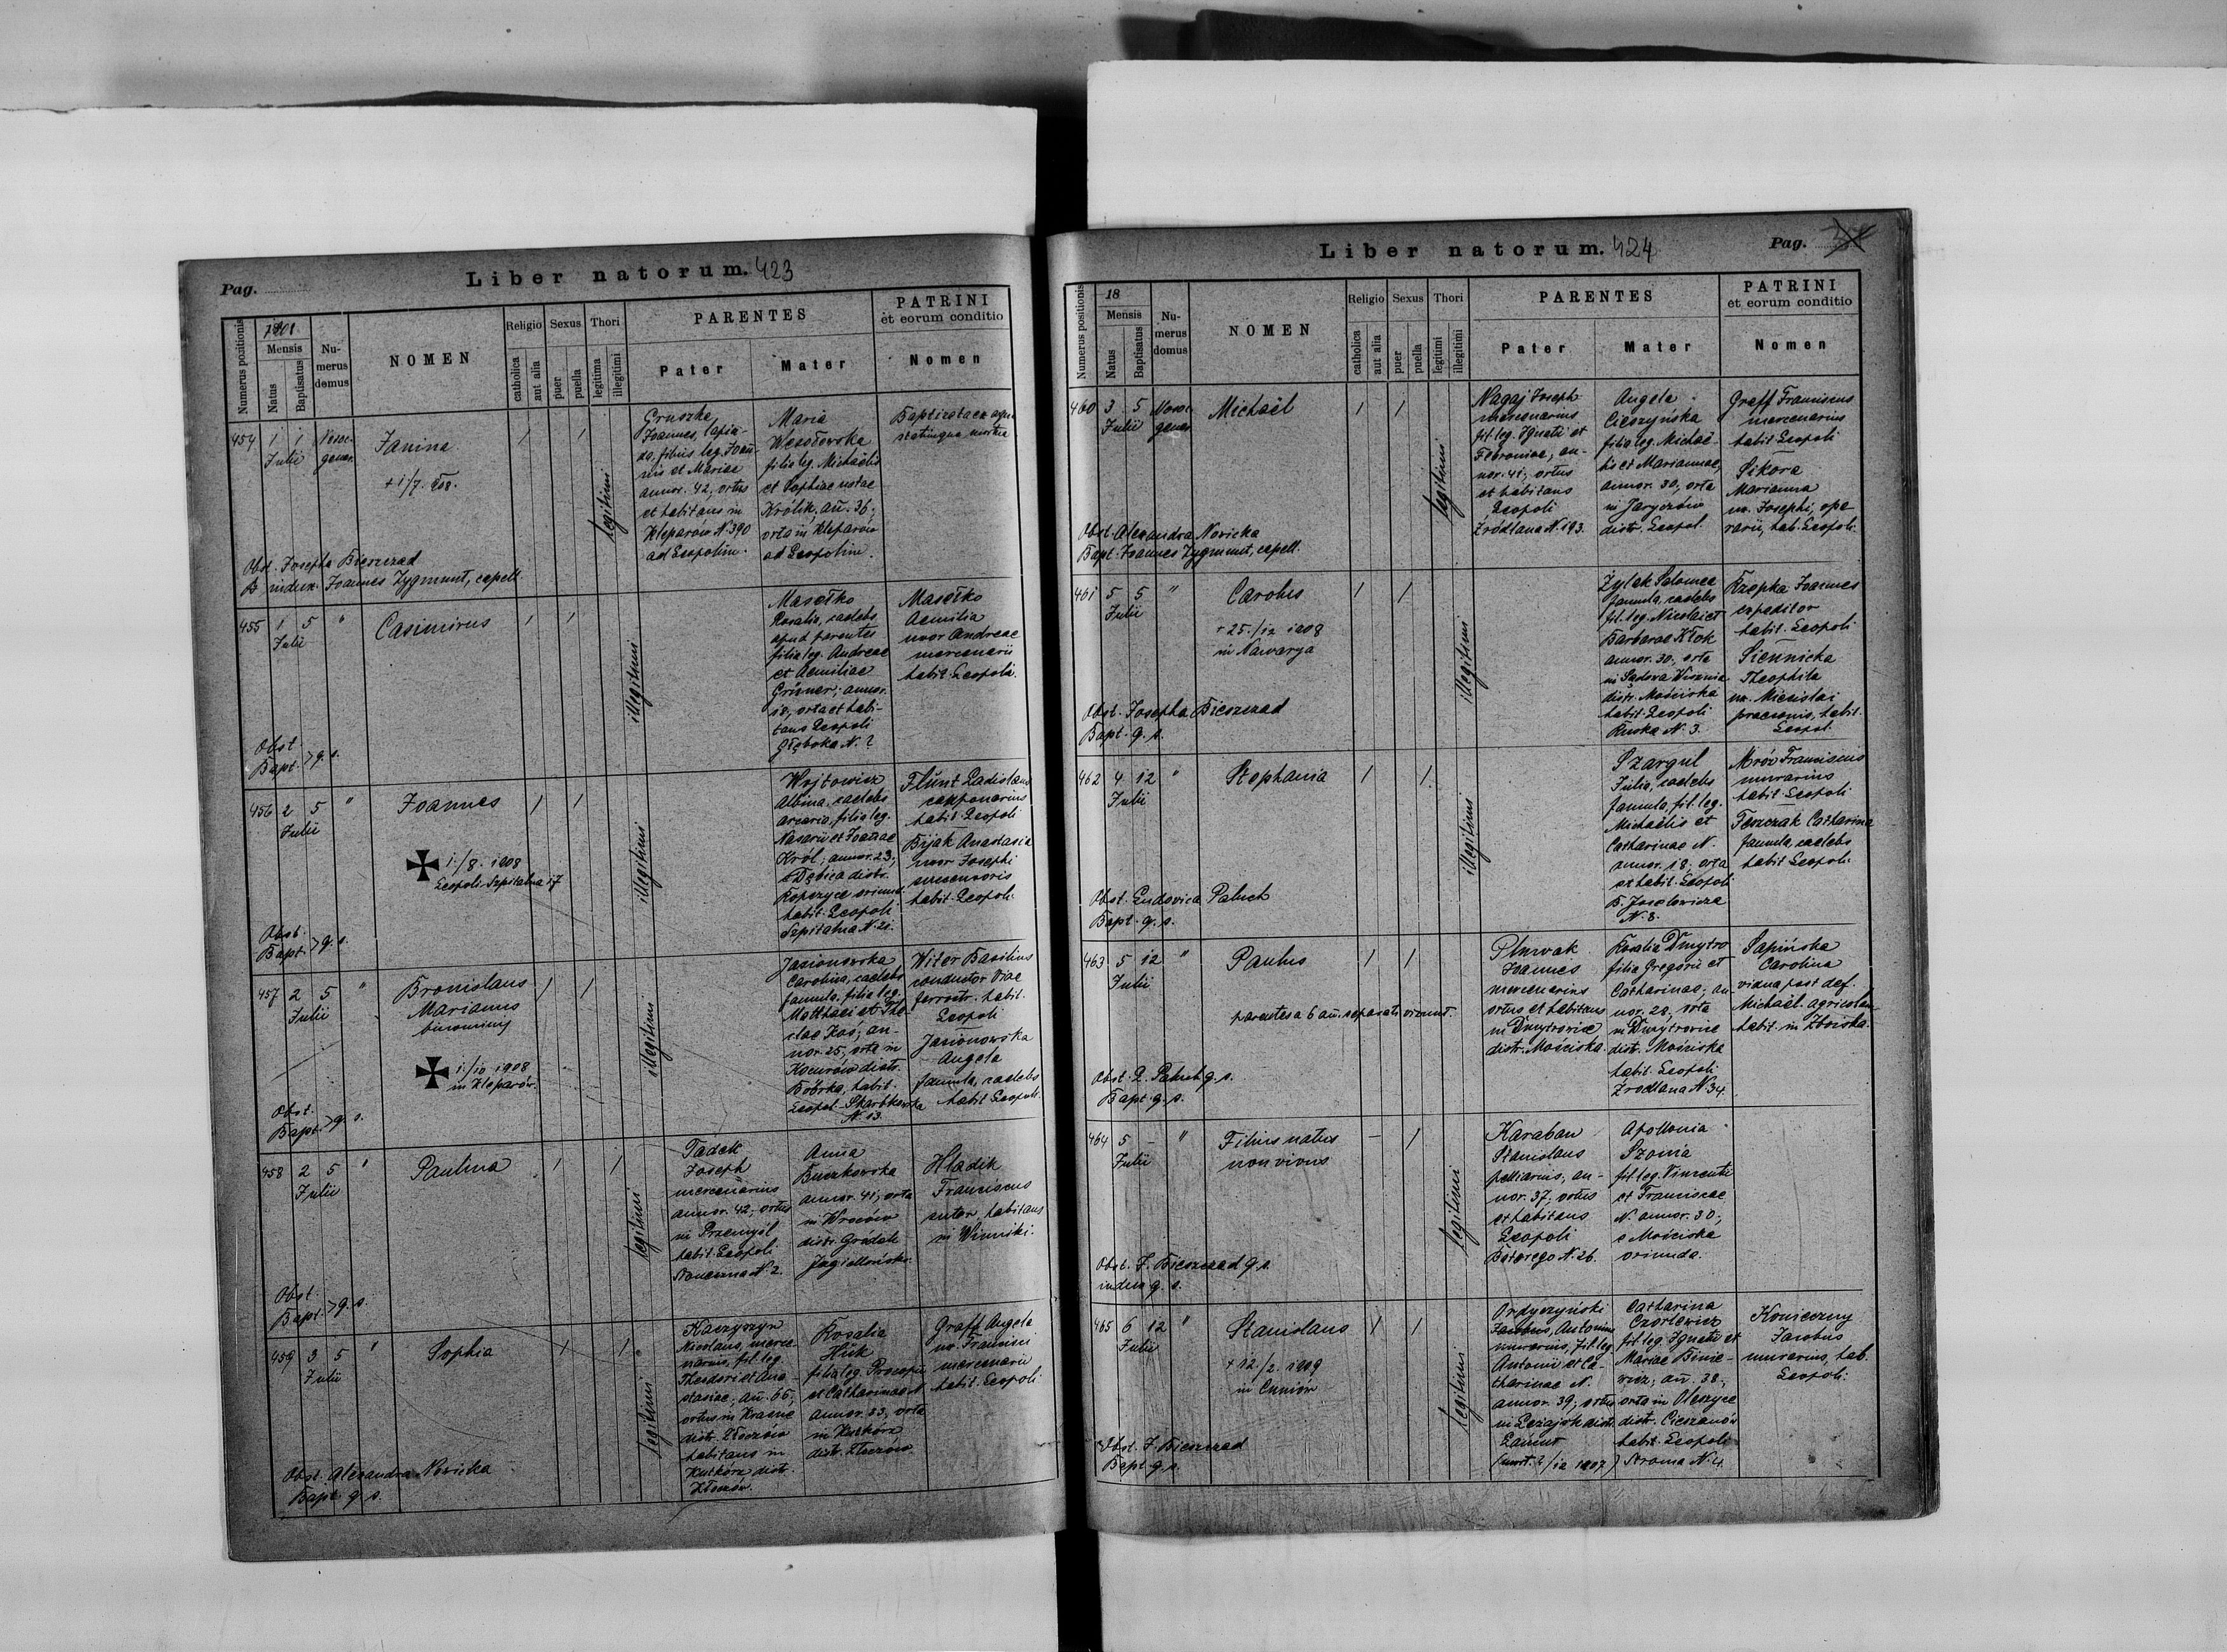 Pag.
Liber natorum. 423
Numerus positionis
1908
Mensis
Natus
Baptisatus
Nu-
merus
domus
NOMEN
Religio
catholica
aut alia
Sexus
puer
puella
Thori
legitima
illegitimi
PARENTES
Pater
Mater
PATRINI
et eorum conditio
Nomen
454
1
1
Julii
Nosoc-
gener.
Janina
+ 1/7. 908.
legitimi
Gruszka
Joannes, lapia-
da, filius leg. Joañ-
nis et Mariae
annor. 42, ortus
et habitans in
Kleparów N. 390
ad Leopolim.
Maria
Wesołowska
filia leg. Michaëlis
et Sophiae natae
Królik, añ. 36,
orta in Kleparów
ad Leopolim.
Baptizata ex aqua
statimque mortua
Obst. Josepha Bieszczad
B. indux. Joannes Zygmunt, capell.
455
1
5
Julii
"
Casimirus
illegitimi
Masełko
Rosalia, caelebs
apud parentes
filia leg. Andreae
et Aemiliae
Grüner, annor.
18, orta et habi-
tans Leopoli
Głęboka N. 2
Masełko
Aemilia
uxor Andreae
mercenarii
habit. Leopoli.
Obst.
Bapt. > q. s.
456
2
5
Julii
"
Joannes
1./8. 1908
Leopoli Szpitalna 17
illegitimi
Wojtowicz
Albina, caelebs
filia leg.
Nasarii et Joañae
Król, annor. 23,
e Dębica distr.
oriund.
habit. Leopoli
Szpitalna N. 21.
Flünt Ladislaus
habit. Leopoli
Bijak Anastasia
uxor Josephi
habit. Leopoli.
Obst.
Bapt. > q. s.
457
2
5
Julii
"
Bronislaus
Marianus
binominis
1./10 1908
in Kleparów.
illegitimi
Jasionowska
Carolina, caelebs
famula, filia leg.
Matthaei et The-
clae Kos, an-
nor. 25, orta in
distr.
Bóbrka, habit.
Leopol. Skarbkowska
N. 13.
Witer Basilius
conductor viae
ferrostr. habit.
Leopoli
Jasionowska
Angela
famula, caelebs
habit Leopoli.
Obst.
Bapt. > q. s.
458
2
5
Julii
"
Paulina
legitimi
Tadek
Joseph
mercenarius
annor. 42, ortus
in Przemyśl
habit. Leopoli
Słoneczna N. 2.
Anna
Buczkowska
annor. 41, orta
in Wroców
distr. Gródek
Jagielloński.
Hladik
Franciscus
sutor, habitans
in Winniki.
Obst.
Bapt. > q. s.
459
3
5
Julii
"
Sophia
legitimi
Kaczyszyn
Nicolaus, merce-
narius, fil. leg.
Theodori et Ana-
stasiae, añ. 66,
ortus in Krasne
distr. Złoczów
habitans in
Kutkórz distr.
Złoczów.
Rosalia
Hük
filia leg. Procopii
et Catharinae N.
annor. 33, orta
in Kutkórz
distr. Złoczów
Graff Angela
ux. Francisci
mercenarii
habit. Leopoli.
Obst. Alexandra Nowicka
Bapt. q. s.
Liber natorum. 424
Pag.
Numerus positionis
18
Mensis
Natus
Baptisatus
Nu-
merus
domus
NOMEN
Religio
catholica
aut alia
Sexus
puer
puella
Thori
legitimi
illegitimi
PARENTES
Pater
Mater
PATRINI
et eorum conditio
Nomen
460
3
5
Julii
Nosoc-
gener.
Michaël
legitimi
Nagaj Joseph
mercenarius
fil. leg. Ignatii et
Febroniae, an-
nor. 41, ortus
et habitans
Leopoli
Źródlana N. 193.
Angela
Cieszyńska
filia leg. Michaë-
lis et Mariannae,
annor. 30, orta
in Jaryczów
distr. Leopol.
Graff Franciscus
mercenarius
habit. Leopoli
Sikora
Marianna
ux. Josephi, ope-
rarii, hab. Leopoli.
Obst. Alexandra Nowicka
Bapt. Joannes Zygmunt, capell.
461
5
5
Julii
"
Carolus
+ 25./12 1908
in Nawarya
illegitimi
Żylak Salomea
famula, caelebs
fil. leg. Nicolai et
Barbarae Kłok
annor. 30, orta
in Sądowa Wisznia
distr. Mościska
habit. Leopoli
Ruska N. 3.
Rzepka Joannes
expeditor
habit. Leopoli
Siennicka
Theophila
ux. Miecislai
praeconis, habit.
Leopol.
Obst. Josepha Bieszczad
Bapt. q. s.
462
4
12
Julii
"
Stephania
illegitimi
Szargul
Julia, caelebs
famula, fil. leg.
Michaëlis et
Catharinae N.
annor. 18, orta
et habit. Leopoli
B. Joselewicza
N. 8.
Mróz Franciscus
murarius
habit. Leopoli
Teszczak Catharina
famula, caelebs
habit Leopoli.
Obst. Ludovica Paluch
Bapt. q. s.
463
5
12
Julii
"
Paulus
parentes a 6 añ. separati vivunt.
Plurwak
Joannes
mercenarius
ortus et habitans
in Dmytrowice
distr. Mościska.
Rosalia Dmytro
filia Gregorii et
Catharinae, an-
nor. 28, orta
in Dmytrowice
distr. Mościska
habit. Leopoli
Zrodlana N. 34.
Sapińska
Carolina
vidua post def.
Michaël. agricolam
habit. in Zboiska.
Obst. L. Paluch q. s.
Bapt. q. s.
464
5
-
Julii
"
Filius natus
non vivus
legitimi
Karaban
Stanislaus
pelliarius, an-
nor. 37, ortus
et habitans
Leopoli
Batorego N. 26.
Apollonia
Szonia
fil. leg. Vincentii
et Franciscae
N. annor. 30,
e Mościska
oriunda.
Obst. J. Bieszczad q. s.
indux q. s.
465
6
12
Julii
"
Stanislaus
+ 12/2. 1909
in Cuniów
legitimi
Ordyczyński
Jacobus, Antonius
murarius, fil. leg.
Antonii et Ca-
tharinae N.
annor. 39, ortus
in Leżajsk distr.
Łańcut
(mort. 2/12 1907)
Catharina
Czortewicz
fil. leg. Ignatii et
Mariae Binie-
wicz, añ. 38,
orta in Oleszyce
distr. Cieszanów
habit. Leopoli
Stroma N. 4.
Konieczny
Jacobus
murarius, hab.
Leopoli.
Obst. J. Bieszczad
Bapt q. s.